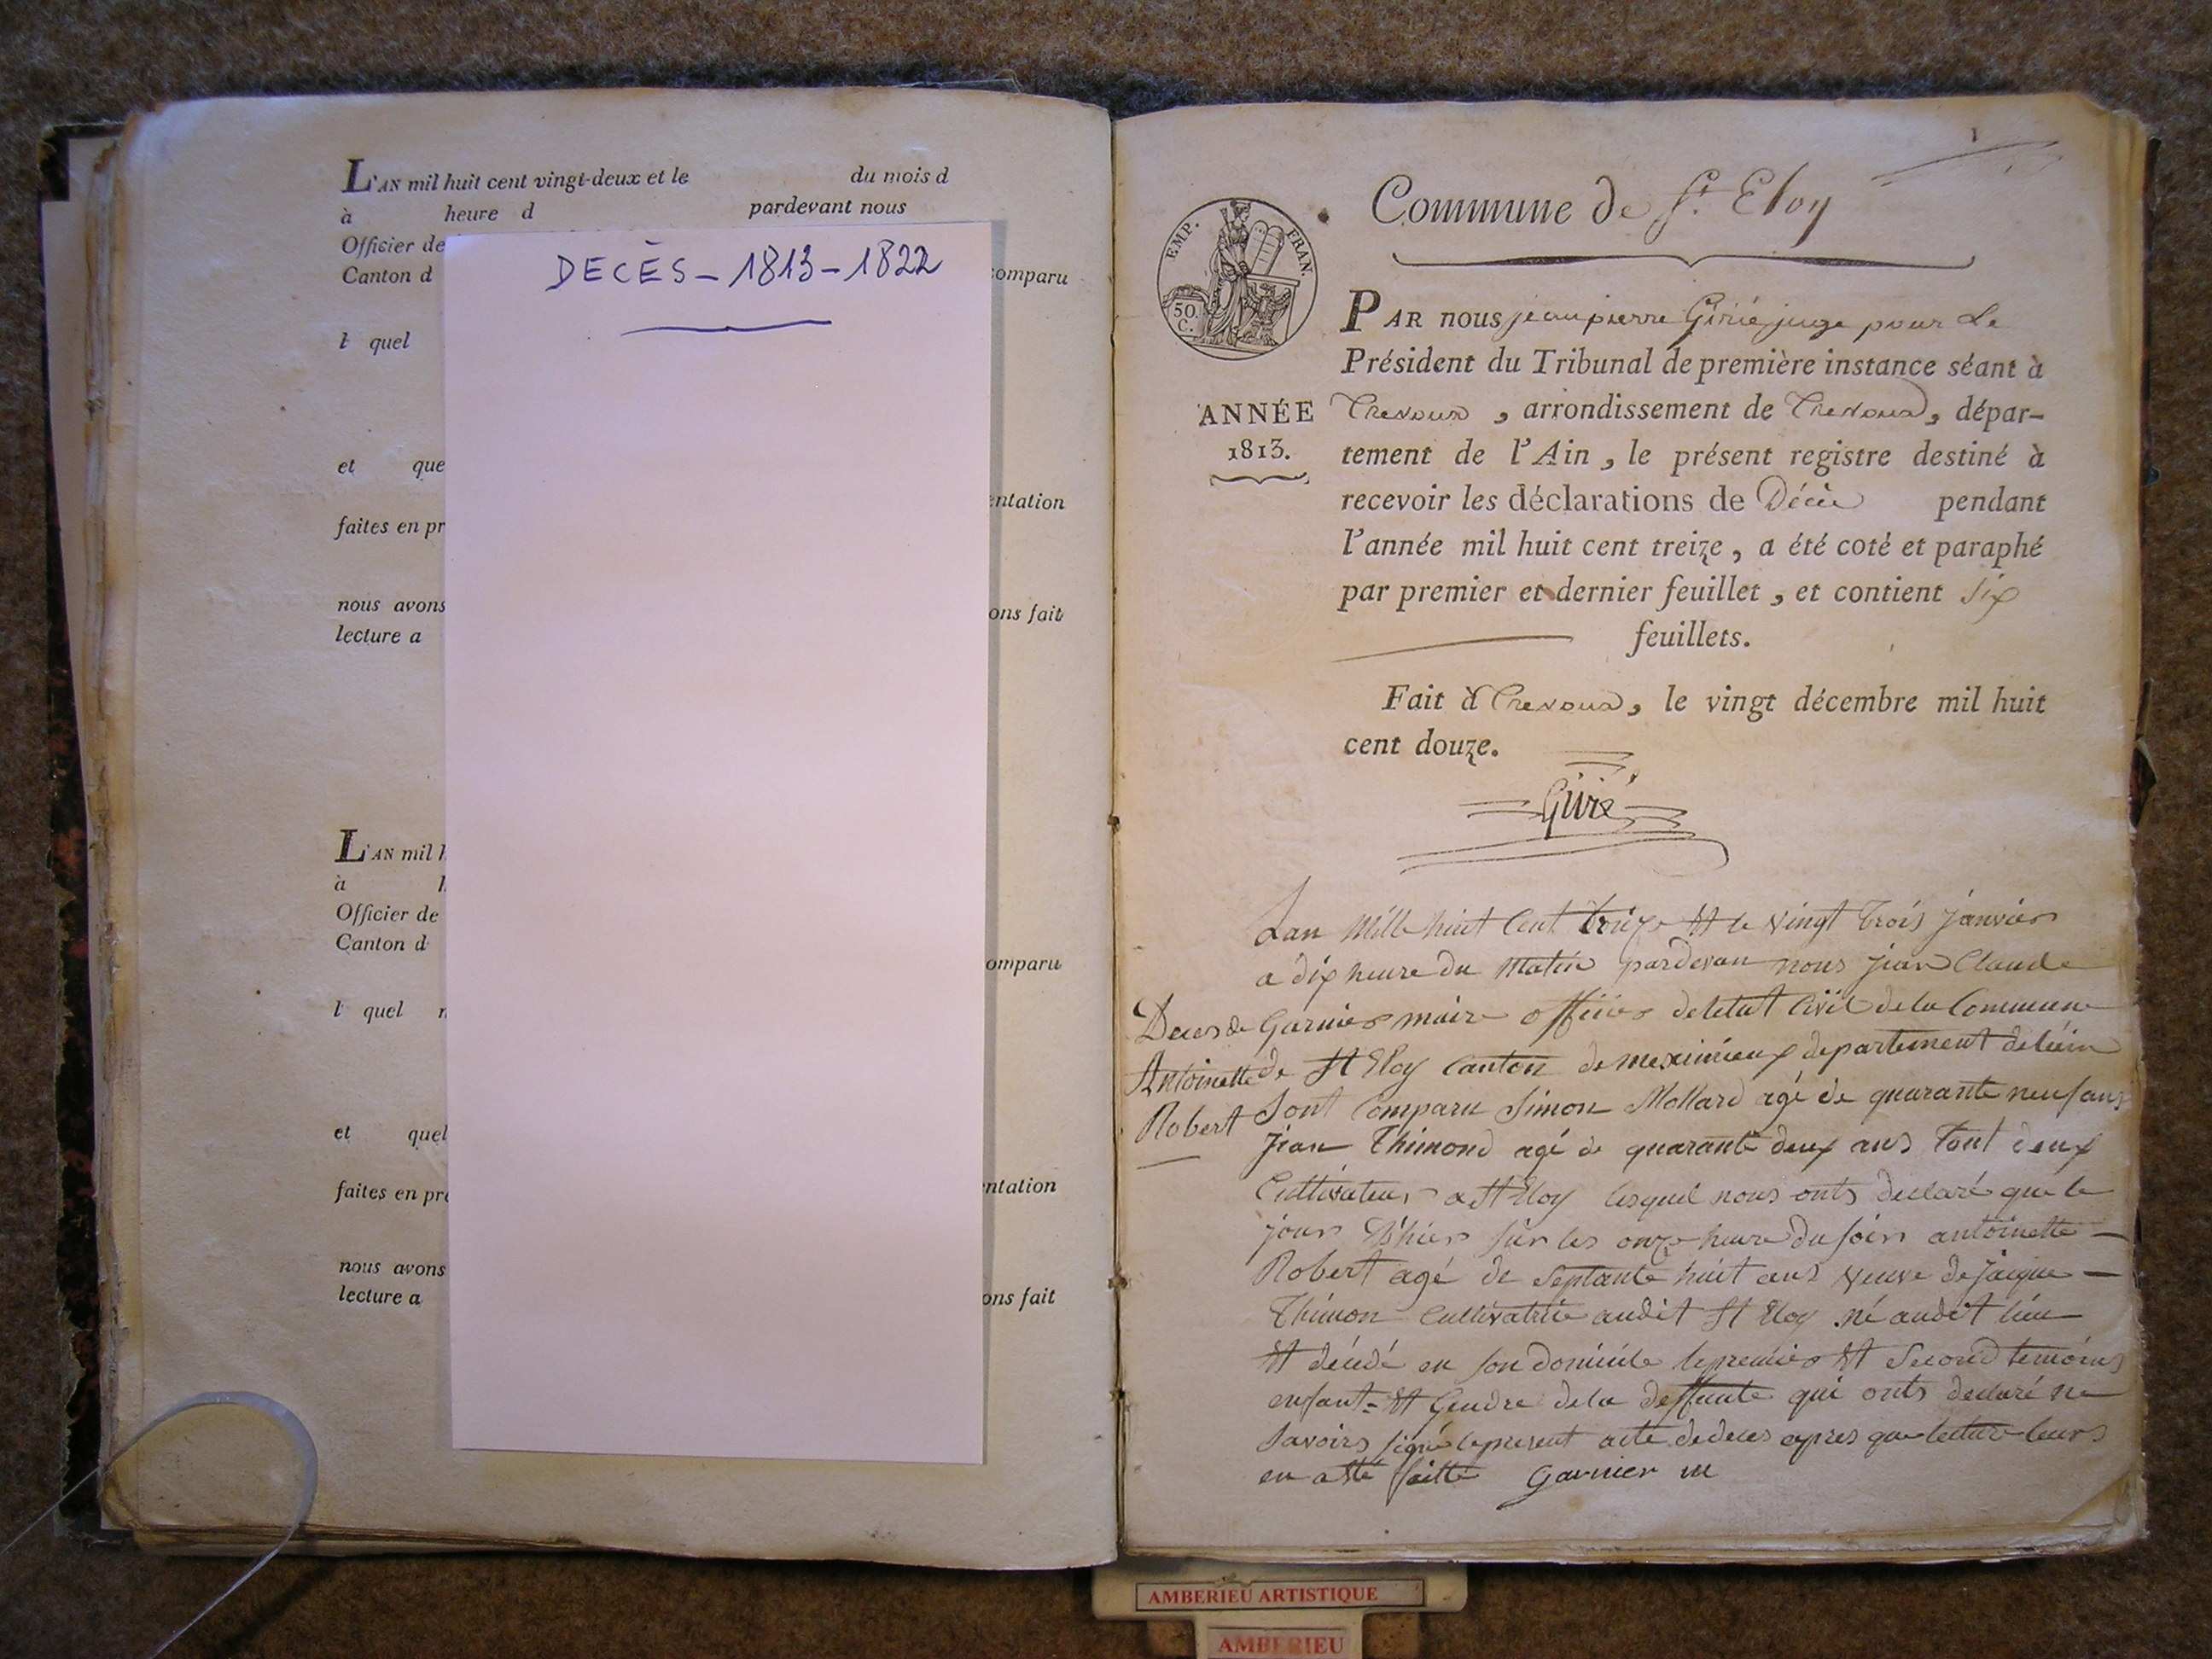 L'AN mil huit cent vingt-deux et le du mois d
à heure d pardevant nous
Officier de
Canton d omparu
l quel
et que
entation
faites en pr
nous avons ons fait
lecture a
L'AN mil h
à
Officier de
Canton d omparu
l quel
et quel
faites en pré ntation
nous avons
lecture a ons fait
DECÈS - 1813 - 1822
Commune de St. Eloy
EMP. FRAN.
50. C.
PAR nous jean pierre Girié juge pour Le
Président du Tribunal de première instance séant à
ANNÉE
1813.
Trevoux, arrondissement de Trevoux, dépar-
tement de l'Ain, le présent registre destiné à
recevoir les déclarations de Décès pendant
l'année mil huit cent treize, a été coté et paraphé
par premier et dernier feuillet, et contient six
feuillets.
Fait à Trevoux, le vingt décembre mil huit
cent douze.
Girié
Deces de
Antoinette
Robert
Lan Mille huit Cent treize Et le vingt trois janvier
a dix heure du matin pardevan nous jean Claude
Garnier maire officier de letat Civil de la Commune
de St Eloy Canton de meximieux departement de lain
Sont Comparu Simon Mollard agé de quarante neuf ans
Jean Thimond agé de quarante deux ans tout deux
Cultivateur a St Eloy lesquel nous onts declaré que le
jour d'hier sur les onze heure du soir antoinette
Robert agé de septante huit ans veuve de jaque
Thimon Cultivatrice audit St Eloy né audit lieu
Et décédé en son domicile le premier Et Second temoins
enfant Et Gendre de la deffunte qui onts declaré ne
Savoirs signé le present acte de deces apres que lecture leurs
en a Eté faitte Garnier m
AMBERIEU ARTISTIQUE
AMBERIEU